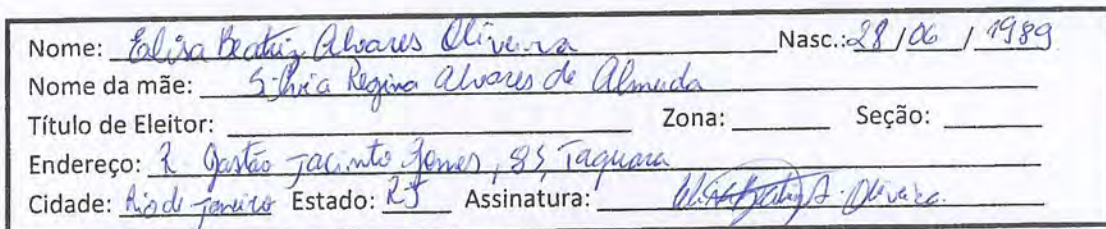 Nome: Elisa Beatriz Alvares Oliveira Nasc.: 28/06/1989
Nome da mãe: Silvia Regina Alvares de Almeida
Título de Eleitor: Zona: Seção:
Endereço: R. Gastão Jacinto Gomes, 85, Taquara
Cidade: Rio de Janeiro Estado: RJ Assinatura: Elisa Beatriz A. Oliveira